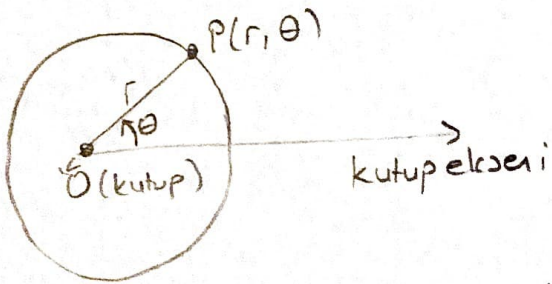 P(r, θ)
r
θ
O (kutup)
kutup ekseni